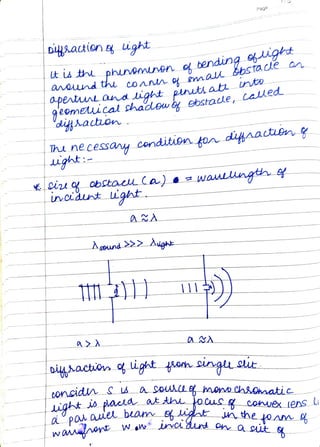 Diffraction of light
It is the phenomenon of bending of light
around the corner of small obstacle or
aperture and light penetrate into
geometrical shadow of obstacle, called
diffraction.
The necessary condition for diffraction of
light :-
size of obstacle (a) = wavelength of
incident light.
a ≈ λ
λ sound >>> λ light
a > λ a ≈ λ
Diffraction of light from single slit
consider S is a source of monochromatic
light is placed at the focus of convex lens L
a parallel beam of light in the form of
wavefront W W' incident on a slit of